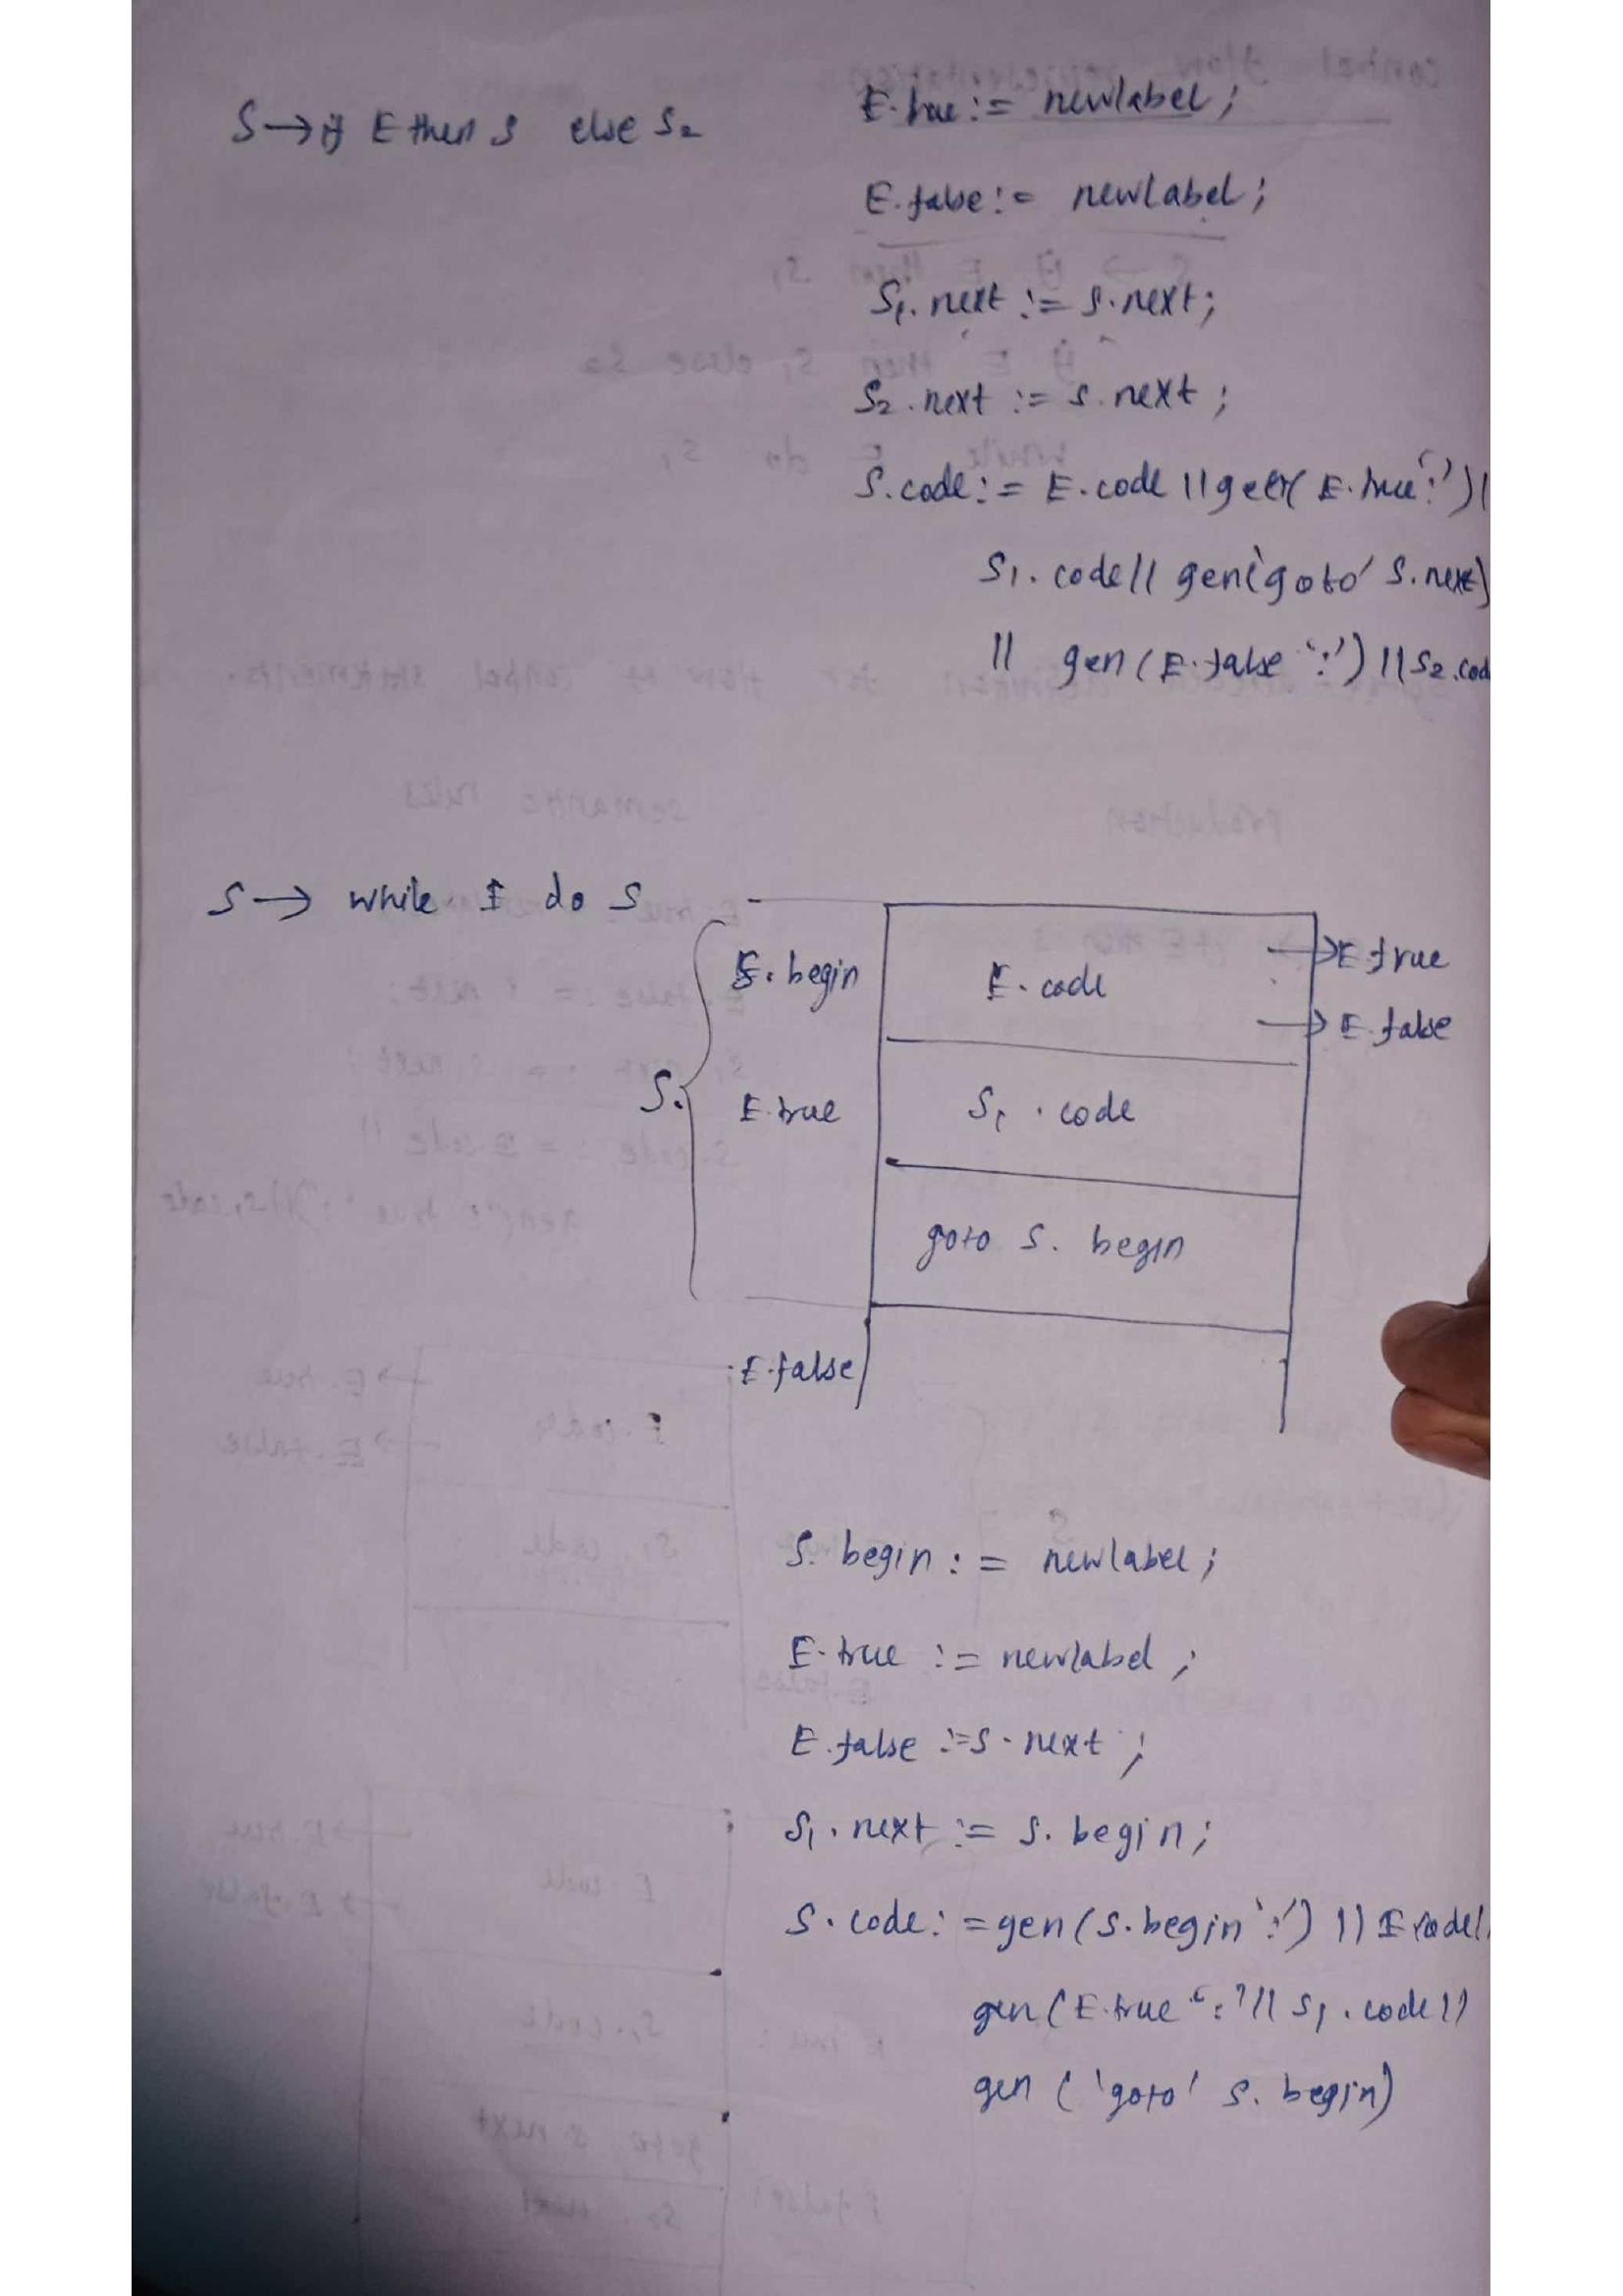 S → if E then S else S2
E.true := newlabel;
E.false := newlabel;
S1.next := S.next;
S2.next := S.next;
S.code := E.code || gen( E.true ':') |
S1.code || gen('goto' S.next)
|| gen (E.false ':') || S2.cod
S → while E do S
E.true
E.begin
E.code
E.false
S.
E.true
S1.code
goto S.begin
E.false
S.begin := newlabel;
E.true := newlabel;
E.false := S.next;
S1.next := S.begin;
S.code := gen (S.begin ':') || E code |
gen ( E.true ':' || S1.code ||
gen ( 'goto' S.begin)